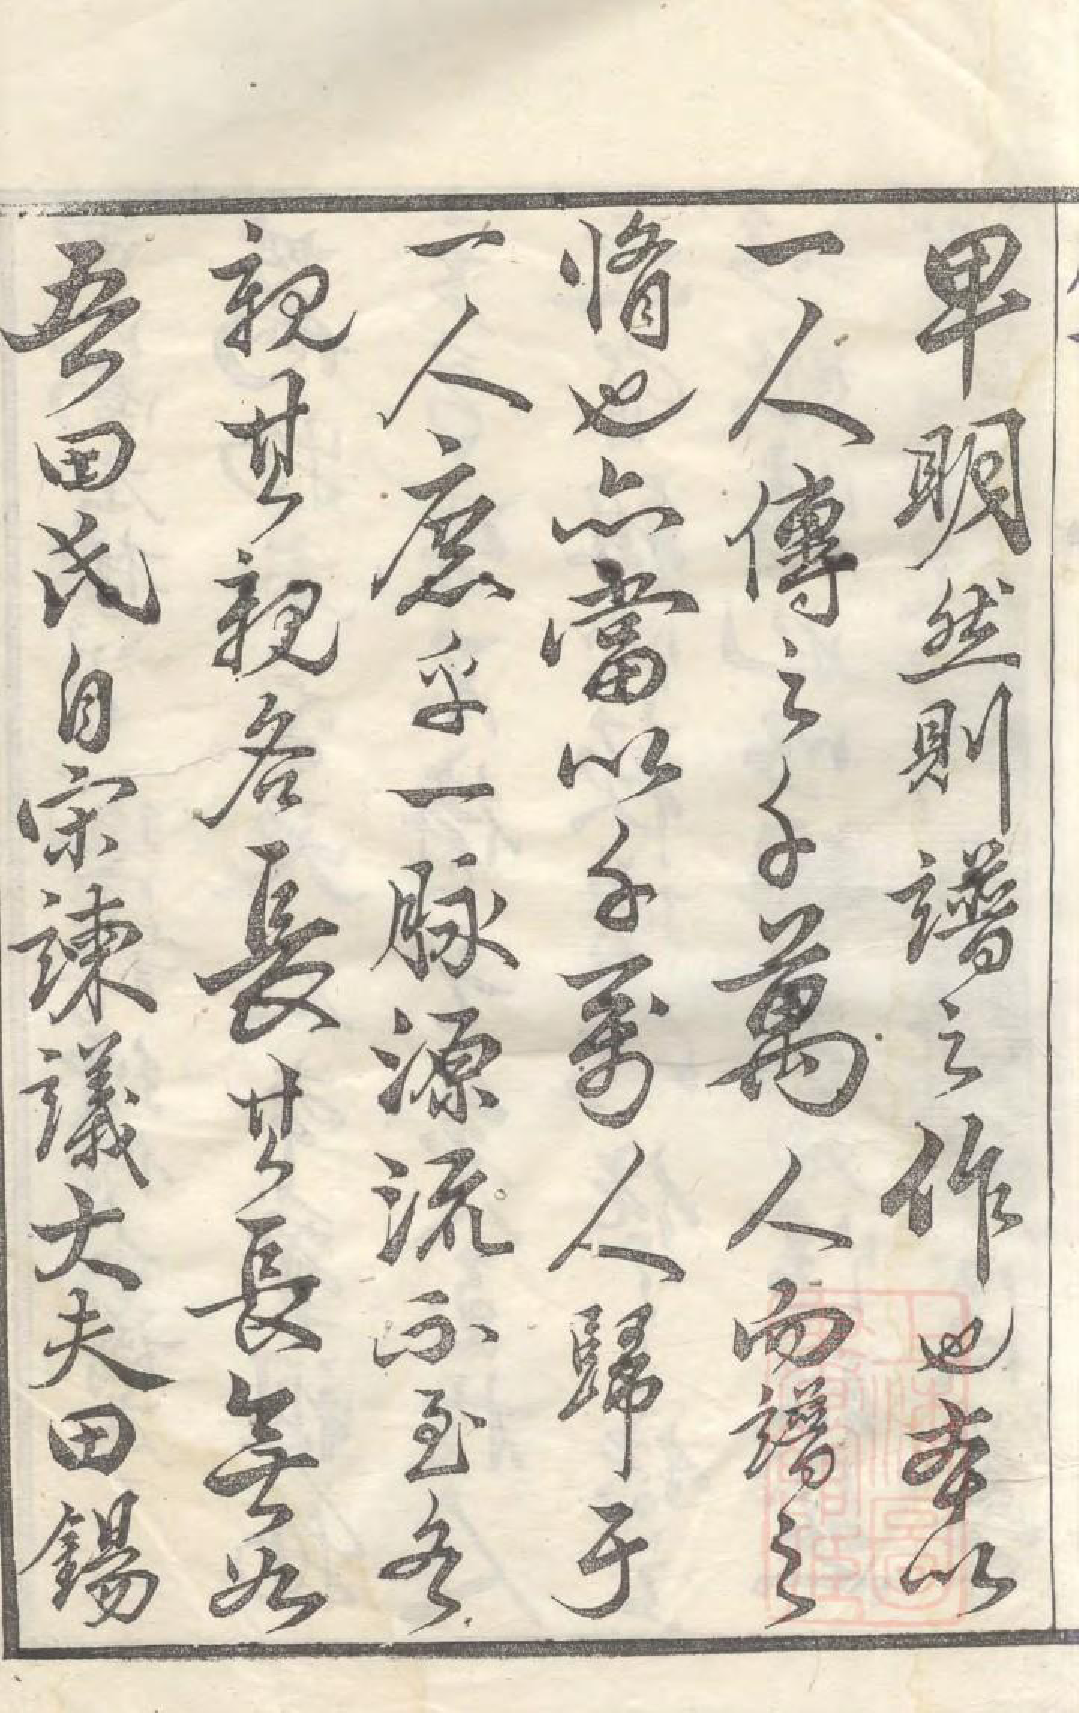 卑明然則譜之作也本以
一人傳之千萬人而譜之
脩也亦當以千万人歸于
一人庶乎一脉源流不至各
親其親各長其長無如
吾田氏自宋諫議大夫田錫